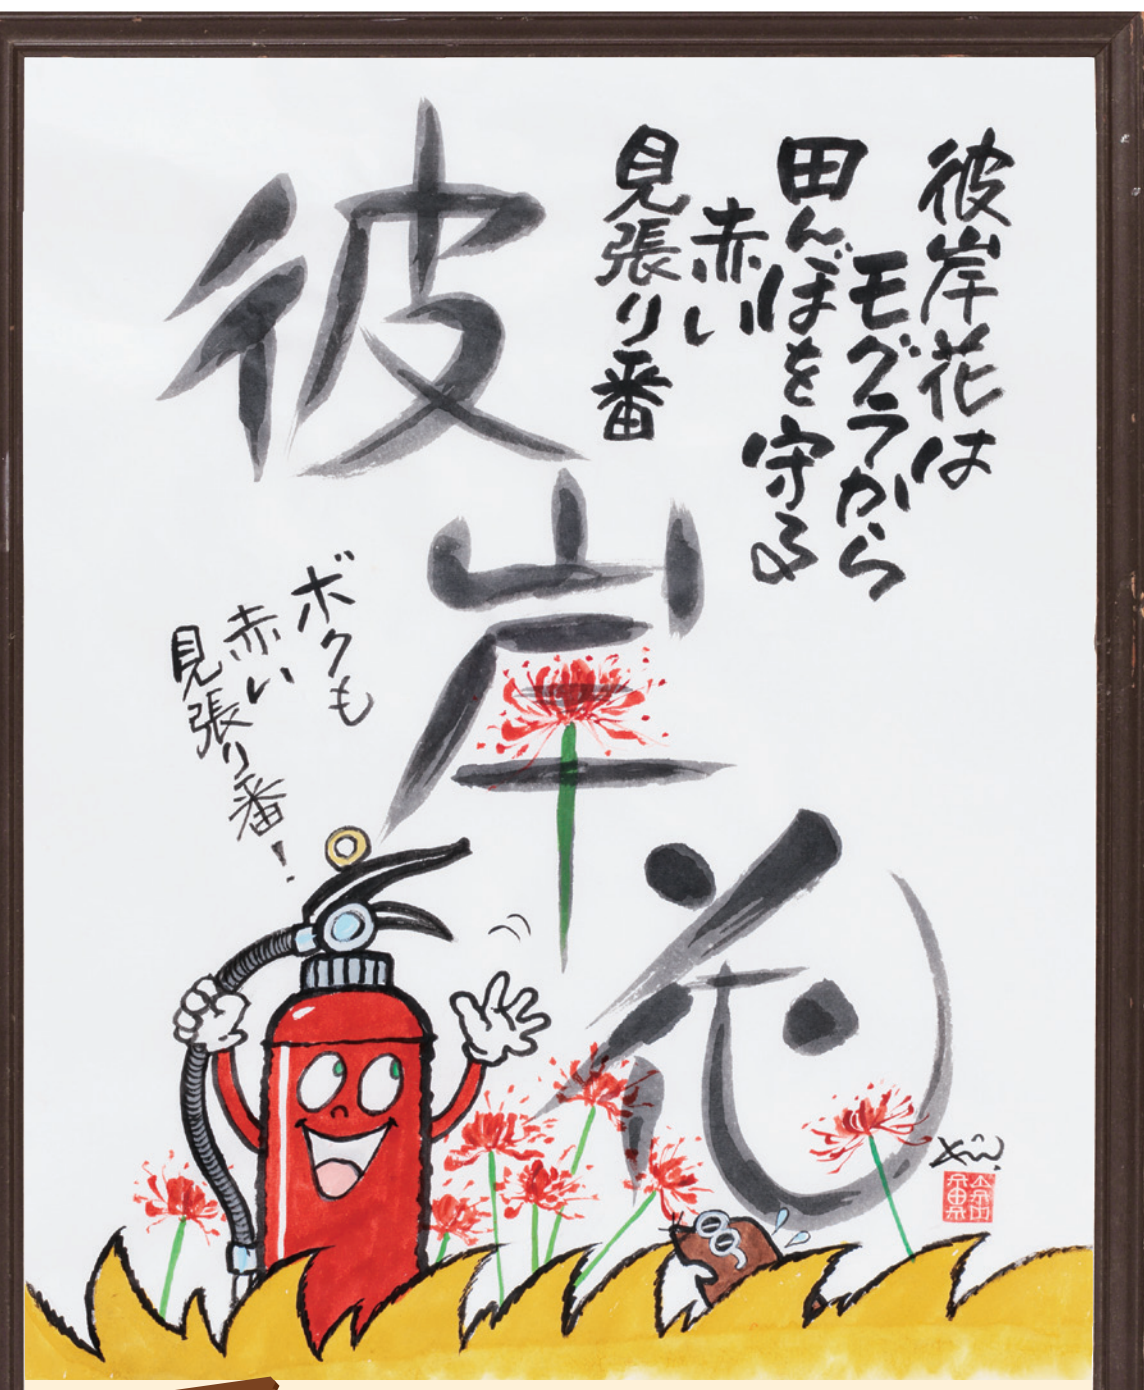 彼岸花は
モグラから
田んぼを守る
赤い
見張り番
彼岸花
ボクも
赤い
見張り番!